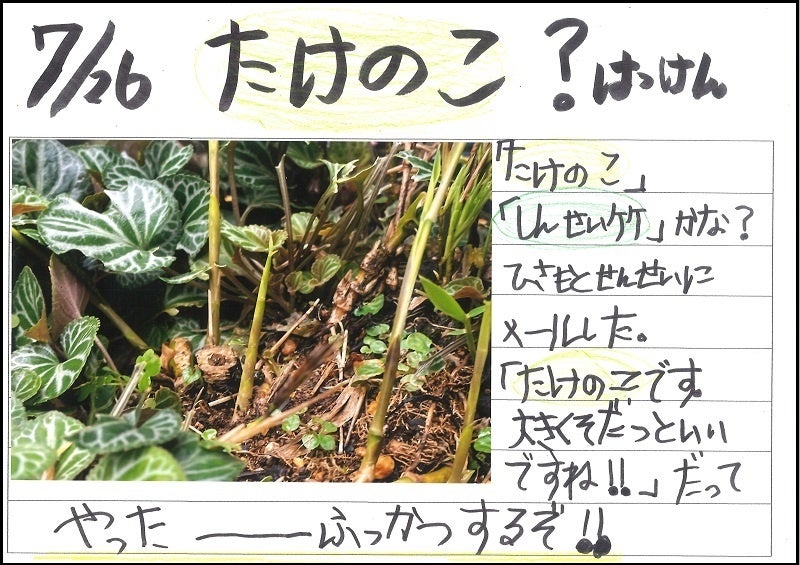 7/26 たけのこ?はっけん
「たけのこ」
「しんせいケケ」かな?
ひさもとせんせいに
メールした。
「たけのこです。
大きくそだっといい
ですね!!」だって
やった――ふっかつするぞ!!